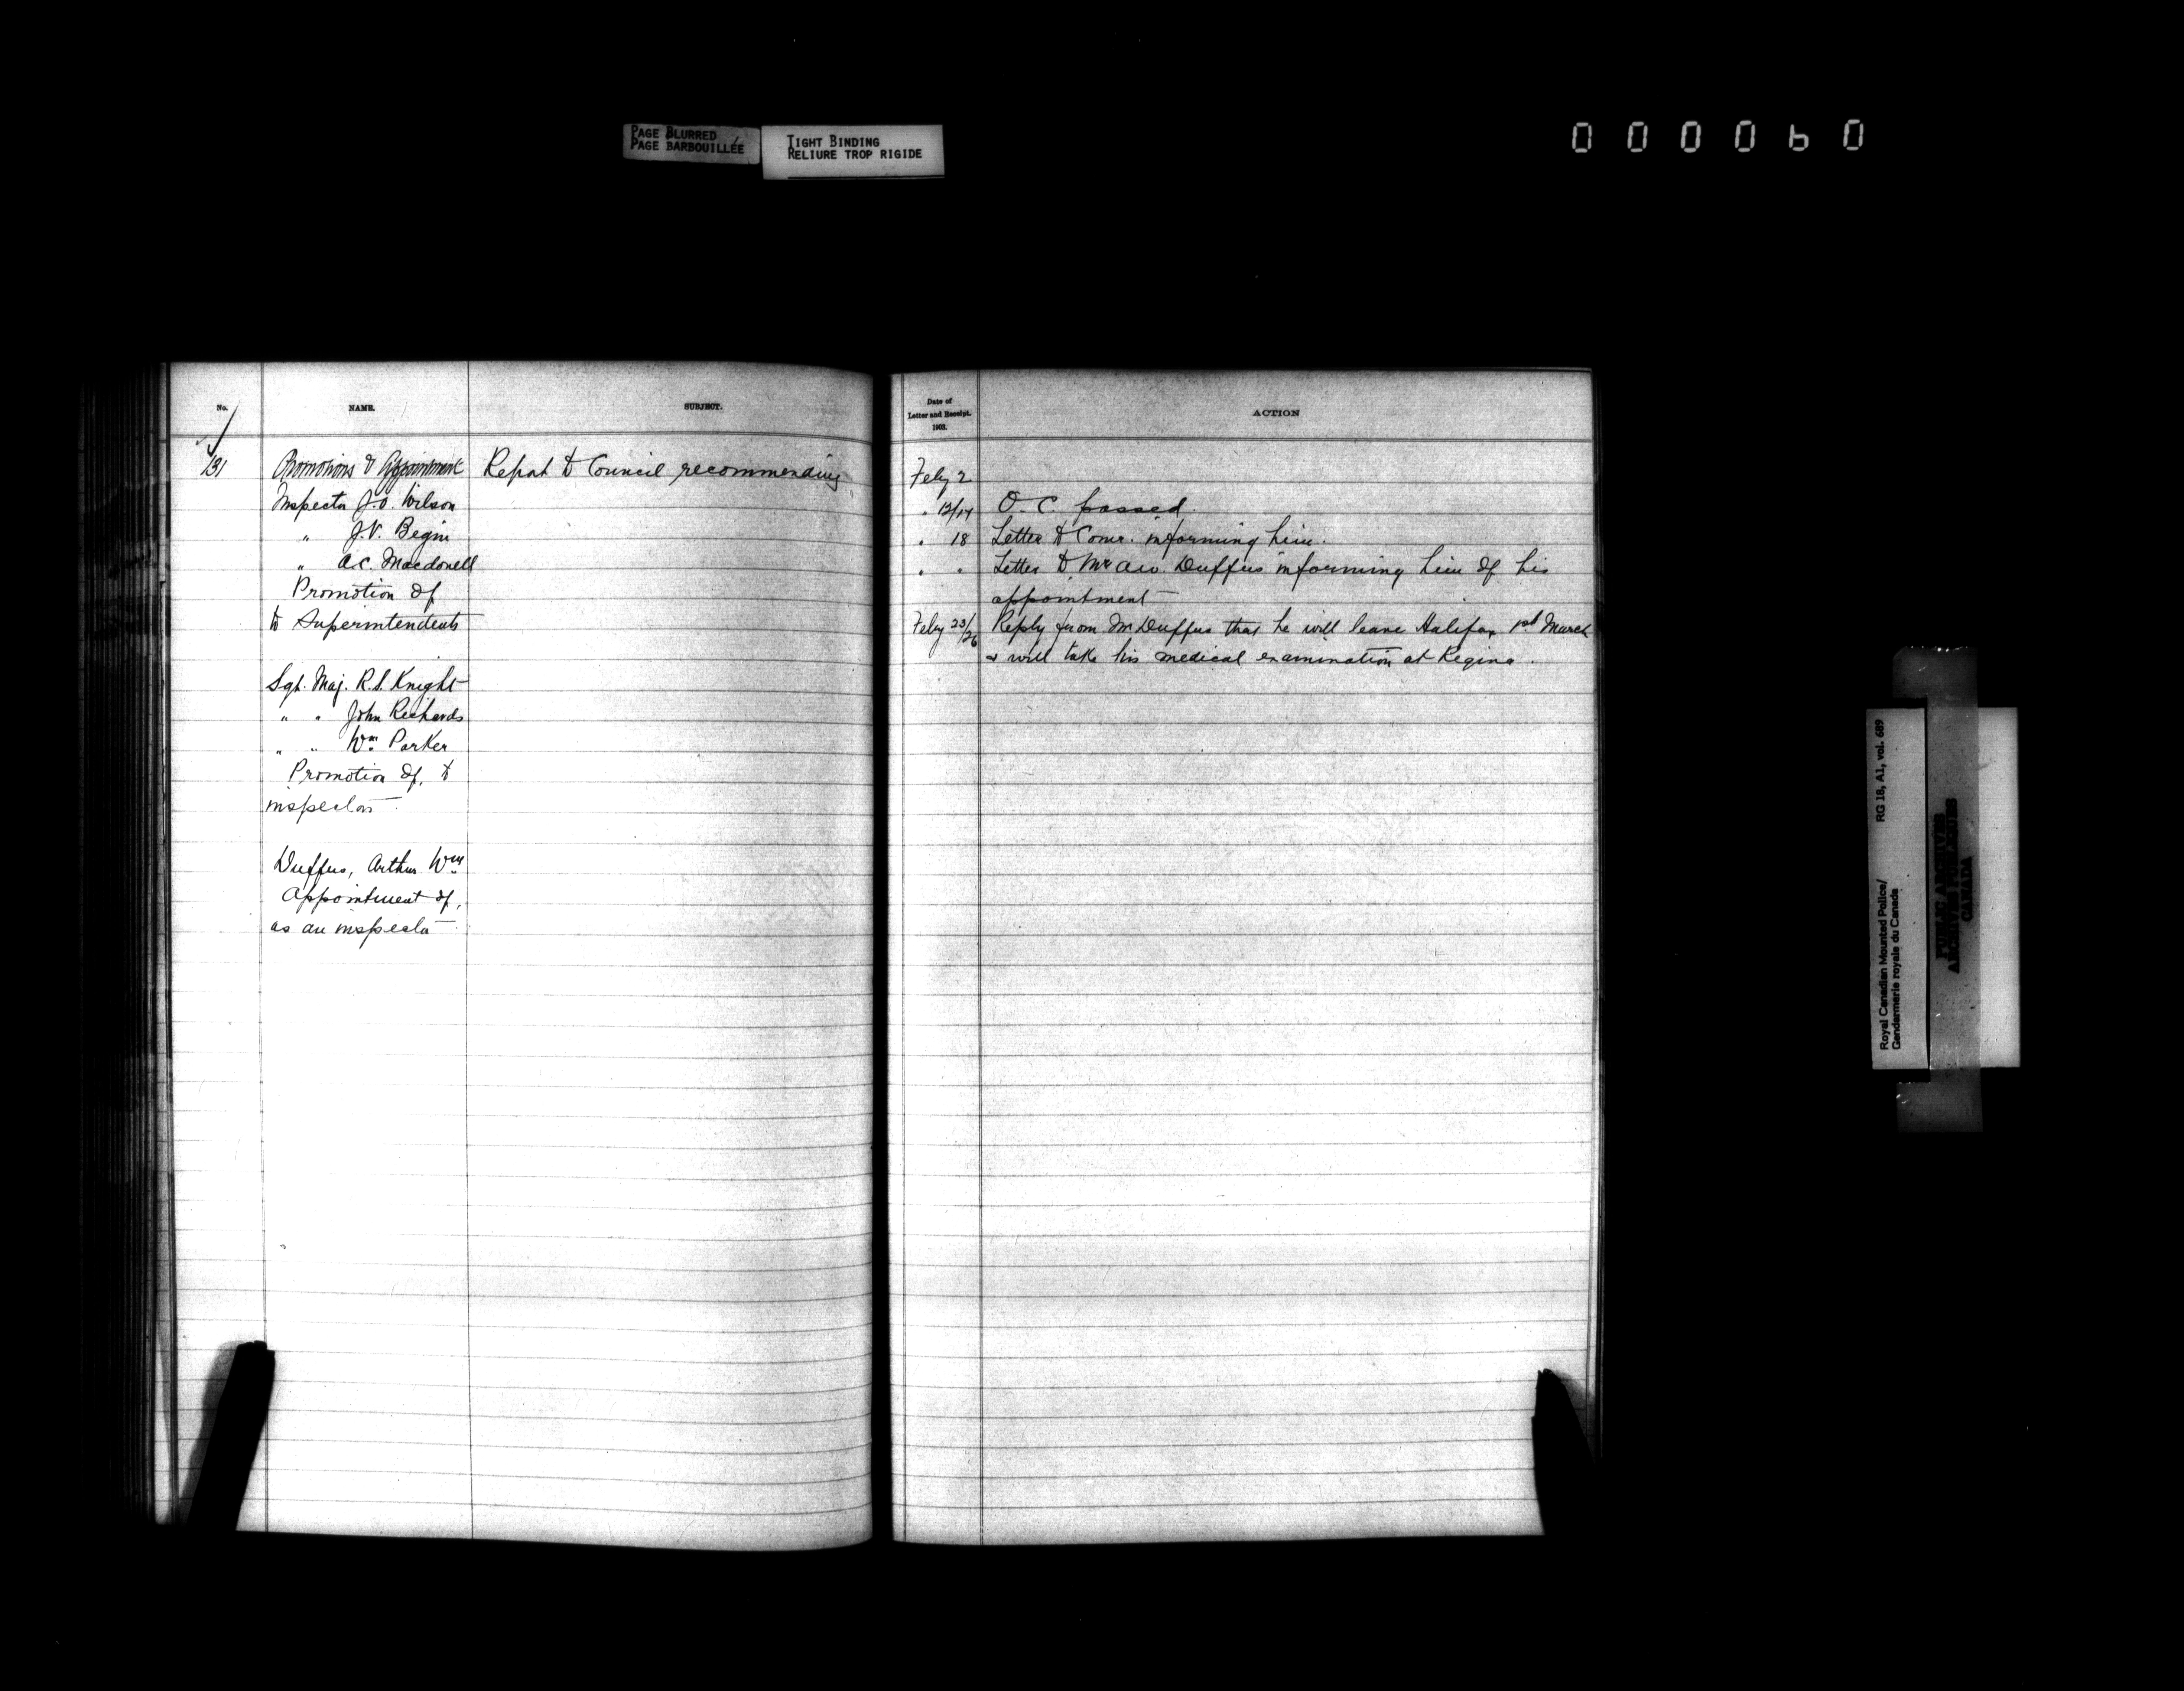 PAGE BLURRED
PAGE BARBOUILLÉE
TIGHT BINDING
RELIURE TROP RIGIDE
000060
No.
NAME.
SUBJECT.
131
Promotions & Appointment
Report to Council recommending
Inspector J.O. Wilson
" J.V. Begin
" A.C. Macdonell
Promotion of
to Superintendents
Sgt. Maj. R.S. Knight
" " John Richards
" " Wm Parker
Promotion of, to
inspectors
Duffus, Arthur Wm
Appointment of,
as an inspector
Date of
Letter and Receipt.
1903.
ACTION
Feby 2
" 12/14 O.C. passed.
" 18 Letter to Comr. informing him.
" " Letter to Mr A.W. Duffus informing him of his
appointment
Feby 23/26 Reply from Mr Duffus that he will leave Halifax 1st March
& will take his medical examination at Regina.
Royal Canadian Mounted Police/
Gendarmerie royale du Canada
RG 18, A1, vol. 689
PUBLIC ARCHIVES
ARCHIVES PUBLIQUES
CANADA